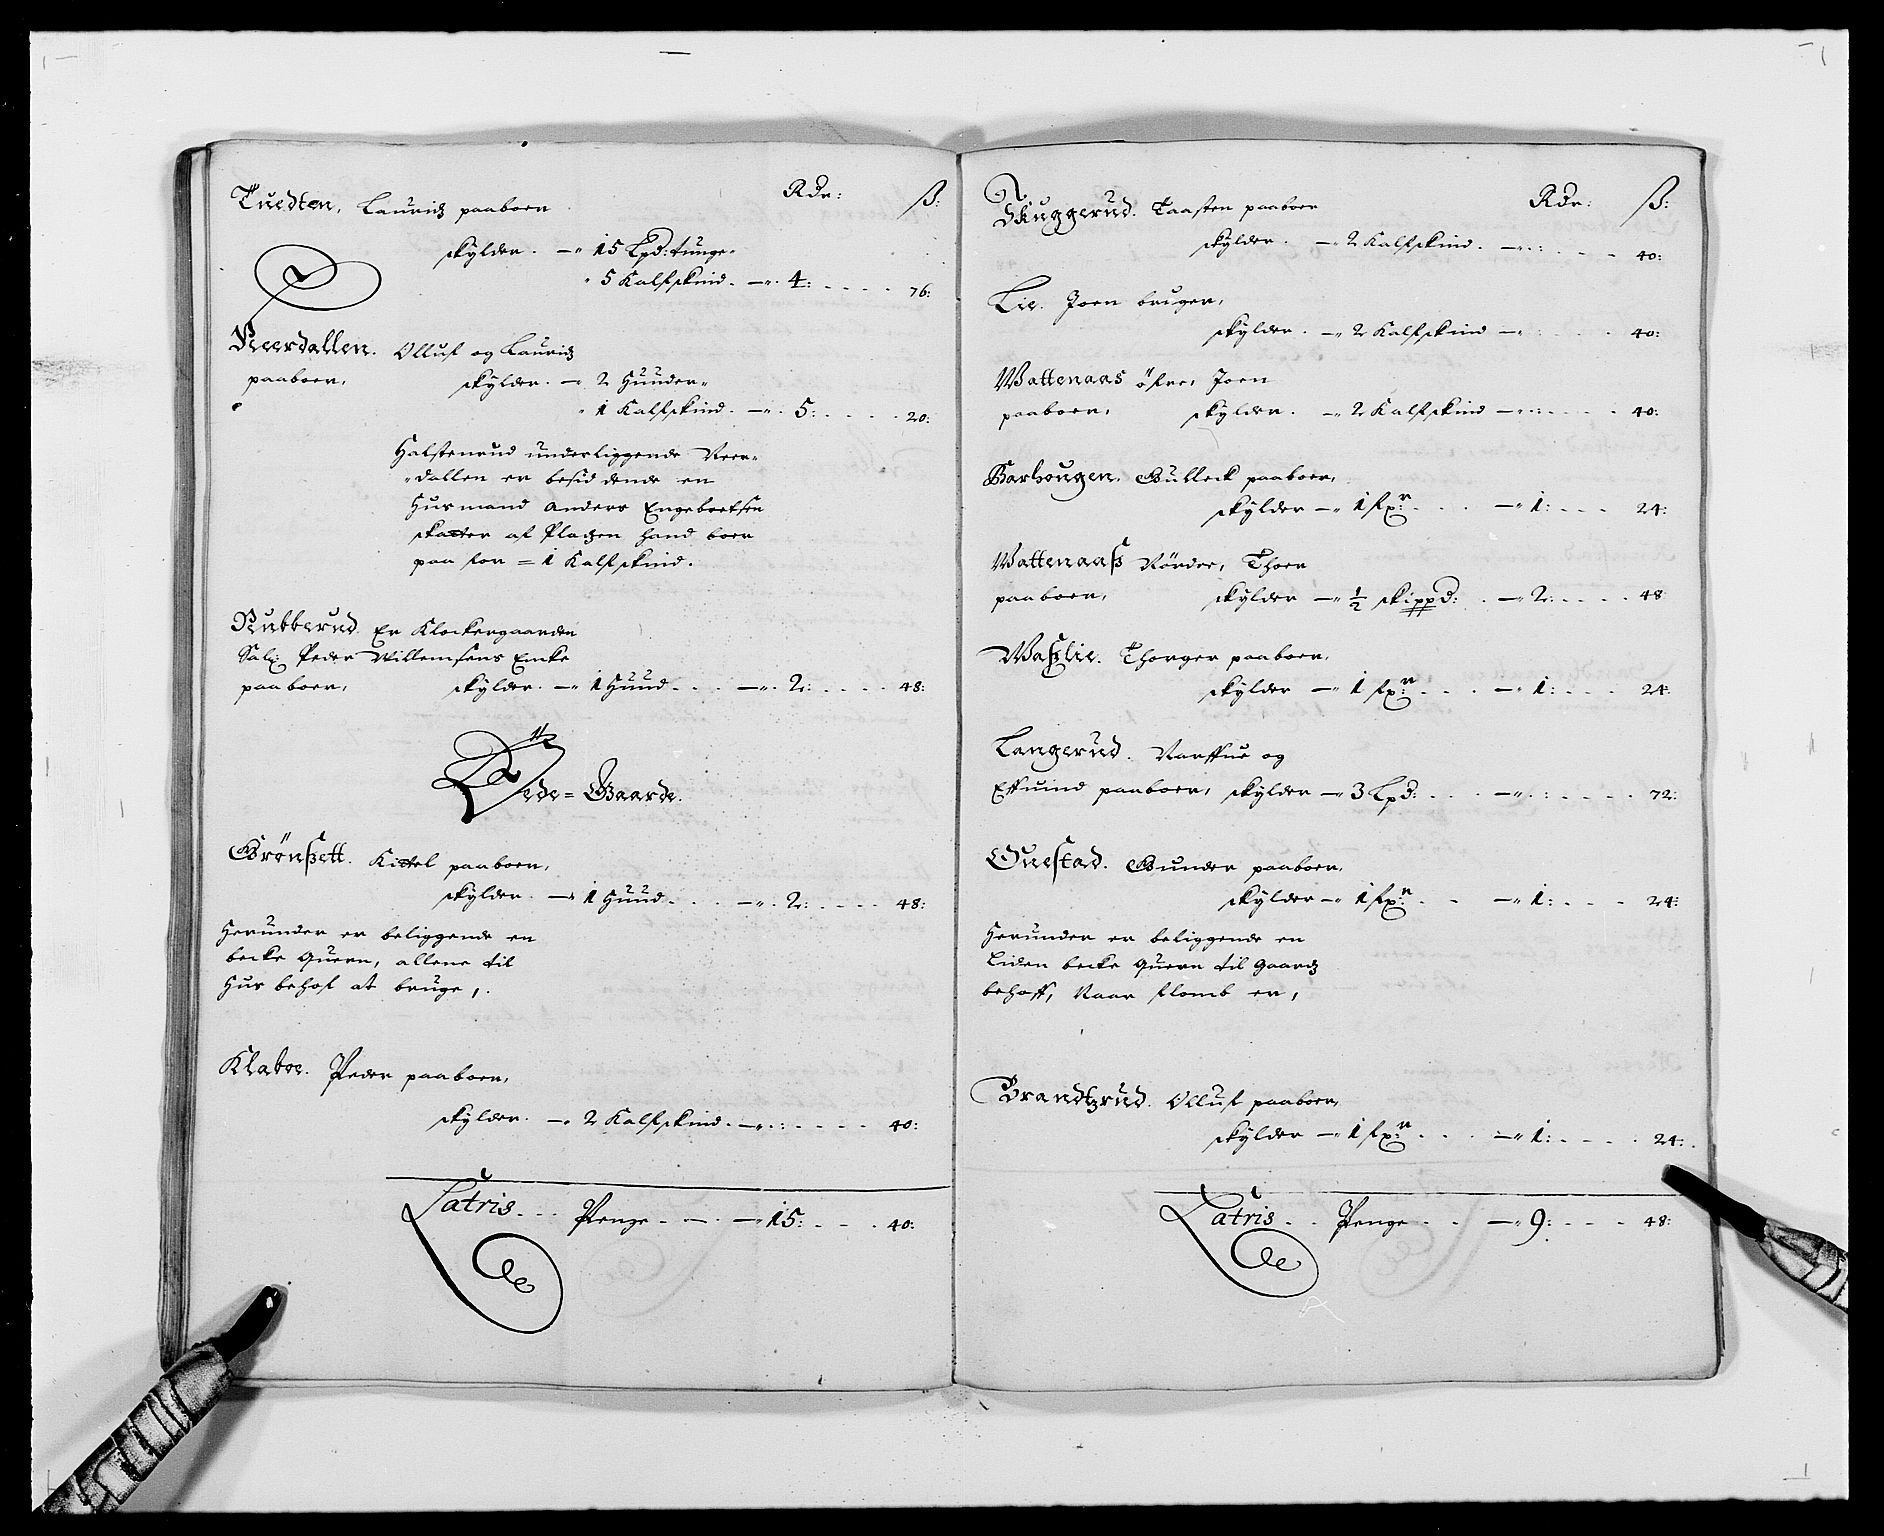 Rdr: ß:
Tuedten, Lauridz paaboer
skylder. — 15 Lpd: tunge
5 Kalfskind. — 4: 76:
Neerdallen. Olluf og Lauridz
paaboer, skylder. — 2 Huuder
1 Kalfskind. — 5: 20:
Halstenrud underliggende Neer-
dallen er besid dende en
Husmand Anders Engebretsen
skatter af Pladzen hand boer
paa for = 1 Kalfskind.
Rukkerud Er Klockergaarden
Sal: Peder Willemsens Encke
paaboer, skylder. — 1 Huud — 2: 48:
Øde = Gaarde.
Grönßett. Kittel paaboer,
skylder. — 1 Huud — 2: 48:
Herunder er beliggende en
becke Quern, allene til
Hus behof at bruge,
Klatre. Peder paaboer,
skylder. — 2 Kalfskind. — 40:
Latris Penge — 15: 40:
Rdr: ß:
Skuggerud. Taasten paaboer
skylder. — 2 Kalfskind. — 40:
Lie. Joen bruger,
skylder. — 2 Kalfskind — 40:
Wattenaas öfre, Joen
paaboer, skylder. — 2 Kalfskind — 40:
Garhougen. Gulleck paaboer,
skylder — 1 fxr: — 1: 24:
Wattenaaß Nördre, Thoer
paaboer, skylder — ½ skippd: — 2: 48
Waßlie. Thorger paaboer,
skylder — 1 fxr: — 1: 24:
Langerud. Narffue og
Effuind paaboer, skylder — 3 Lpd: — 72:
Questad. Gunder paaboer,
skylder — 1 fxr: — 1: 24:
Herunder er beliggende en
Liden becke Quern til Gaardz
behoff, Naar flomb er,
Brandtzrud. Olluf paaboer,
skylder — 1 fxr: — 1: 24:
Latris Penge — 9: 48: